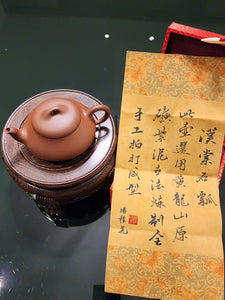 漢棠石瓢
此壺選用黃龍山原
礦紫泥古法煉制全
手工拍打成型